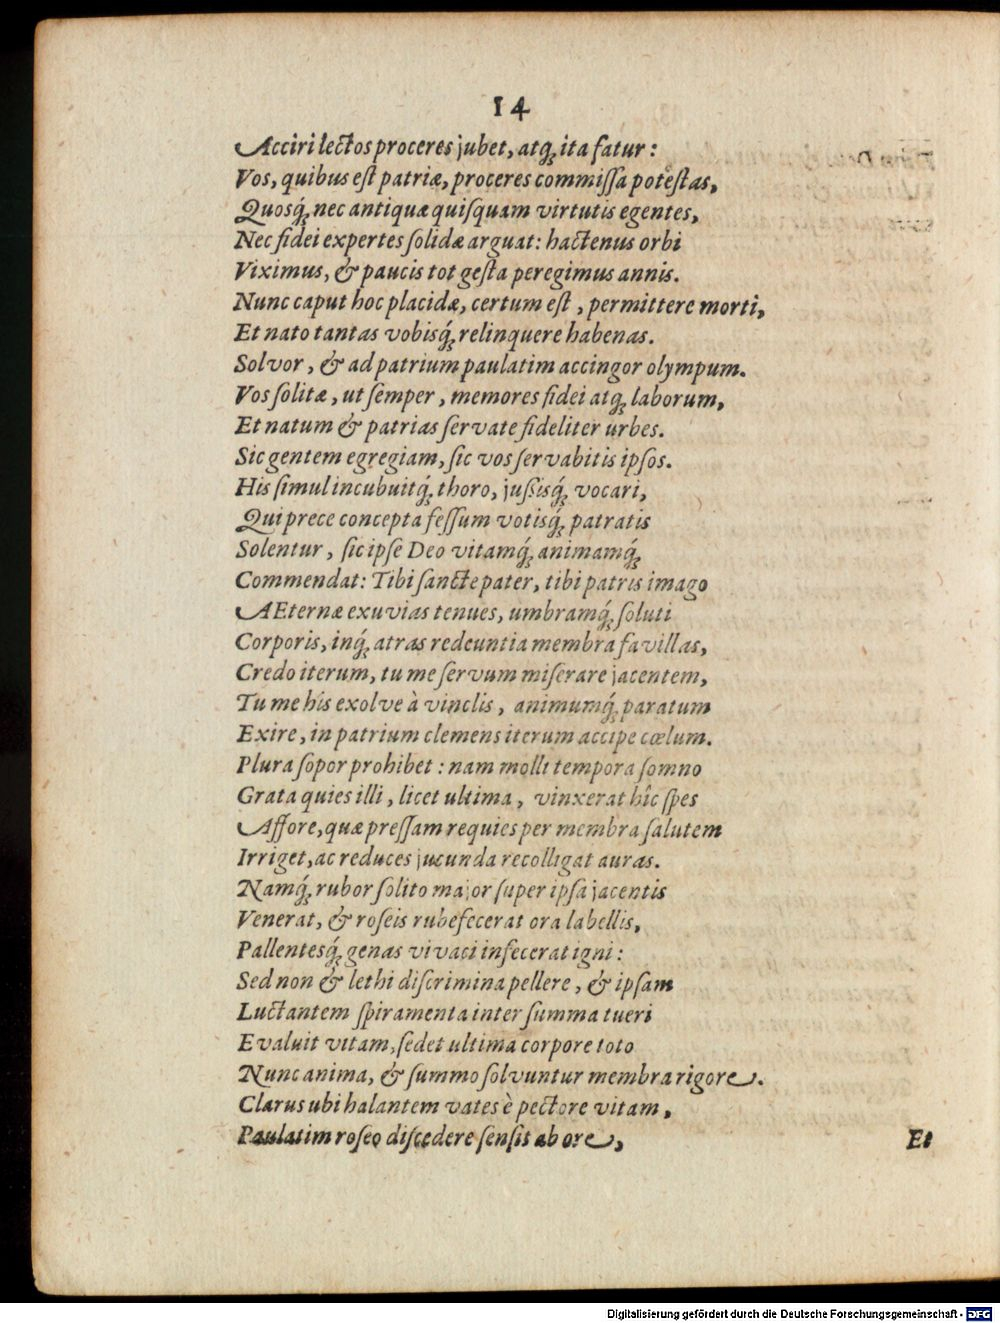 14
Acciri lectos proceres jubet, atq́; ita fatur:
Vos, quibus est patriæ, proceres commissa potestas,
Quosq́; nec antiquæ quisquam virtutis egentes,
Nec fidei expertes solidæ arguat: hactenus orbi
Viximus, & paucis tot gesta peregimus annis.
Nunc caput hoc placidæ, certum est, permittere morti,
Et nato tantas vobisq́; relinquere habenas.
Solvor, & ad patrium paulatim accingor olympum.
Vos solitæ, ut semper, memores fidei atq; laborum,
Et natum & patrias servate fideliter urbes.
Sic gentem egregiam, sic vos servabitis ipsos.
His simul incubuitq́; thoro, jussisq́; vocari,
Qui prece concepta fessum votisq́; patratis
Solentur, sic ipse Deo vitamq́; animamq́;
Commendat: Tibi sancte pater, tibi patris imago
AEternæ exuvias tenues, umbramq́; soluti
Corporis, inq́; atras redeuntia membra favillas,
Credo iterum, tu me servum miserare jacentem,
Tu me his exolve à vinclis, animumq́; paratum
Exire, in patrium clemens iterum accipe cœlum.
Plura sopor prohibet: nam molli tempora somno
Grata quies illi, licet ultima, vinxerat hîc spes
Affore, quæ pressam requies per membra salutem
Irriget, ac reduces jucunda recolligat auras.
Namq́; rubor solito major super ipsa jacentis
Venerat, & roseis rubefecerat ora labellis,
Pallentesq́; genas vivaci infecerat igni:
Sed non & lethi discrimina pellere, & ipsam
Luctantem spiramenta inter summa tueri
Evaluit vitam, sedet ultima corpore toto
Nunc anima, & summo solvuntur membra rigore.
Clarus ubi halantem vates è pectore vitam,
Paulatim roseo discedere sensit ab ore,
Et
Digitalisierung gefördert durch die Deutsche Forschungsgemeinschaft - DFG